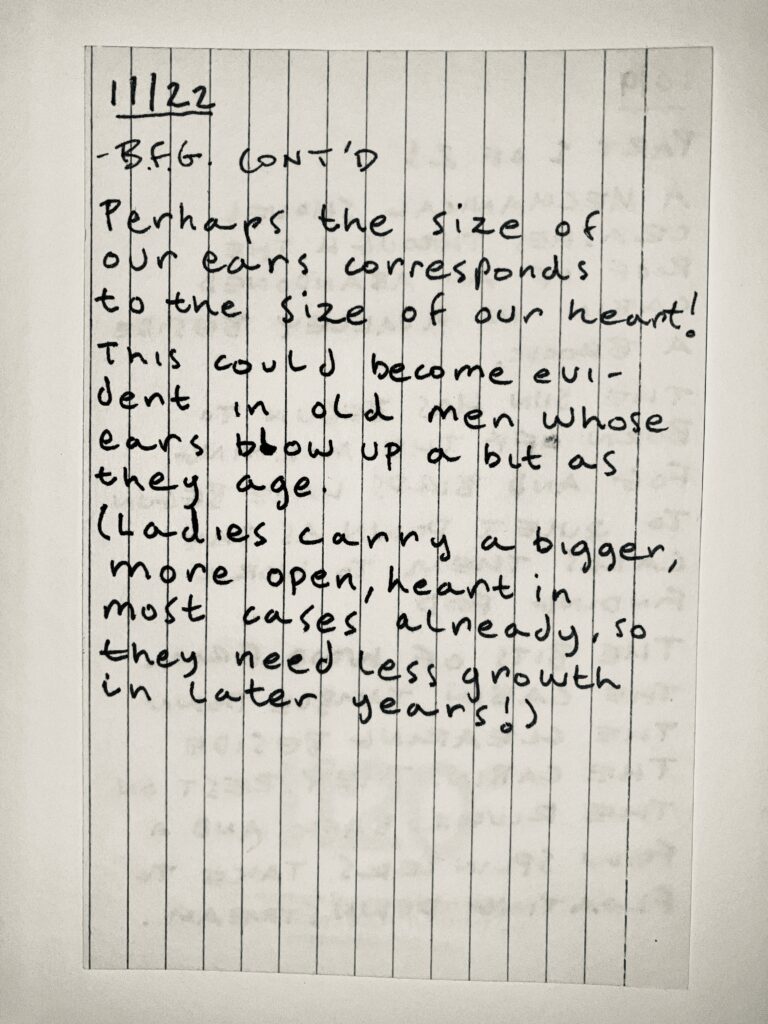 11/22
- B.F.G. CONT'D
Perhaps the size of
our ears corresponds
to the size of our heart!
This could become evi-
dent in old men whose
ears blow up a bit as
they age.
(Ladies carry a bigger,
more open, heart in
most cases already, so
they need less growth
in later years!)